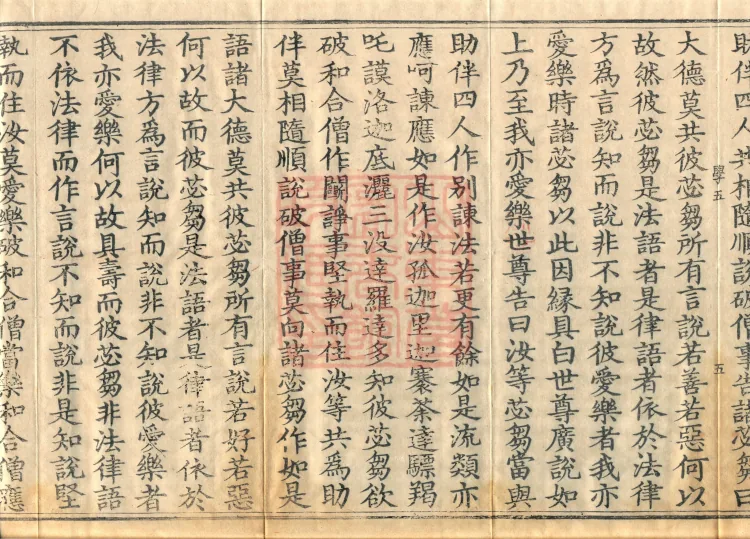 助伴四人共相隨順說破僧事告諸苾芻曰
學五 五
大德莫共彼苾芻所有言說若善若惡何以
故然彼苾芻是法語者是律語者依於法律
方為言說知而說非不知說彼愛樂者我亦
愛樂時諸苾芻以此因緣具白世尊廣說如
上乃至我亦愛樂世尊告曰汝等苾芻當與
助伴四人作別諫法若更有餘如是流類亦
應呵諫應如是作汝孤迦里迦褰荼達驃羯
吒謨洛迦底灑三没達羅達多知彼苾芻欲
破和合僧作鬭諍事堅執而住汝等共為助
伴莫相隨順說破僧事莫向諸苾芻作如是
語諸大德莫共彼苾芻所有言說若好若惡
何以故而彼苾芻是法語者是律語者依於
法律方為言說知而說非不知說彼愛樂者
我亦愛樂何以故具壽而彼苾芻非法律語
不依法律而作言說不知而說非是知說堅
執而住汝莫愛樂破和合僧當樂和合僧應